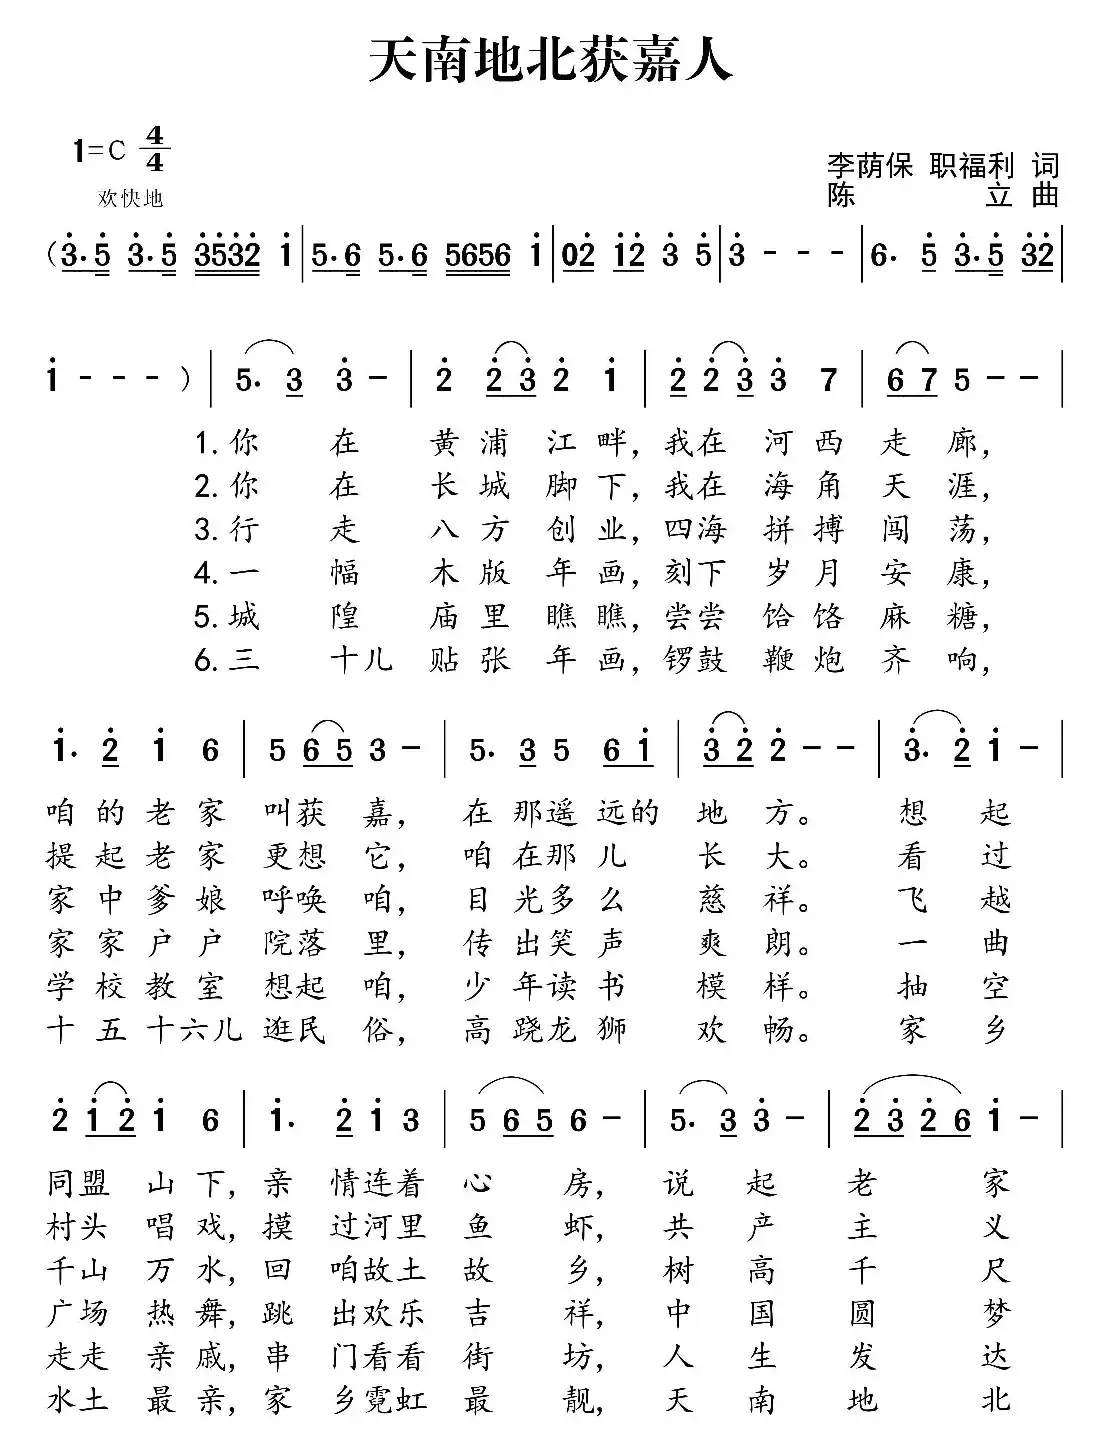 天南地北获嘉人
1=C 4/4
李荫保 职福利 词
欢快地
陈 立 曲
(3·5 3·5 3532 1 | 5·6 5·6 5656 1 | 02 12 3 5 | 3 - - - | 6· 5 3·5 32 |
1 - - - ) | 5· 3 3 - | 2 2 3 2 1 | 2 2 3 3 7 | 6 7 5 - - |
1.你 在 黄 浦 江 畔，我在 河 西 走 廊，
2.你 在 长 城 脚 下，我在 海 角 天 涯，
3.行 走 八 方 创 业，四海 拼 搏 闯 荡，
4.一 幅 木 版 年 画，刻下 岁 月 安 康，
5.城 隍 庙 里 瞧 瞧，尝尝 饸 饹 麻 糖，
6.三 十儿 贴 张 年 画，锣鼓 鞭 炮 齐 响，
1· 2 1 6 | 5 6 5 3 - | 5· 3 5 6 1 | 3 2 2 - - | 3· 2 1 - |
咱 的 老 家 叫获 嘉， 在 那遥 远的 地 方。 想 起
提 起 老 家 更想 它， 咱 在那 儿 长 大。 看 过
家 中 爹 娘 呼唤 咱， 目 光多 么 慈 祥。 飞 越
家 家 户 户 院落 里， 传 出笑 声 爽 朗。 一 曲
学 校 教 室 想起 咱， 少 年读 书 模 样。 抽 空
十 五 十六儿 逛民 俗， 高 跷龙 狮 欢 畅。 家 乡
2 1 2 1 6 | 1· 2 1 3 | 5 6 5 6 - | 5· 3 3 - | 2 3 2 6 1 - |
同盟 山 下，亲 情连着 心 房， 说 起 老 家
村头 唱 戏，摸 过河里 鱼 虾， 共 产 主 义
千山 万 水，回 咱故土 故 乡， 树 高 千 尺
广场 热 舞，跳 出欢乐 吉 祥， 中 国 圆 梦
走走 亲 戚，串 门看看 街 坊， 人 生 发 达
水土 最 亲，家 乡霓虹 最 靓， 天 南 地 北